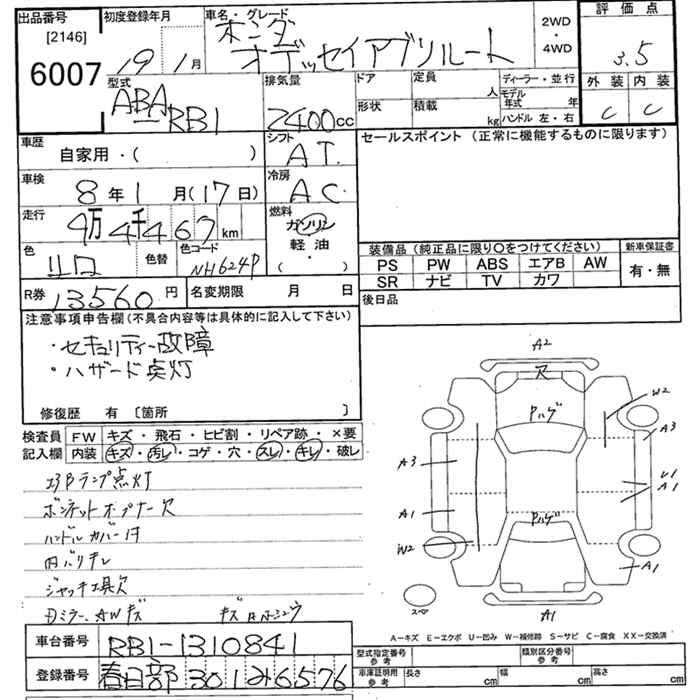 出品番号 初度登録年月 車名・グレード 評価点
[2146] ホンダ 2WD
6007 19年1月 オデッセイアブソルート ・4WD 3.5
型式 排気量 ドア 定員 人 ディーラー・並行 外装 内装
ABA-RB1 2400cc 形状 積載 kg モデル年式 年 C C
ハンドル 左・右
車歴 自家用・( ) シフト AT セールスポイント (正常に機能するものに限ります)
車検 8年1月(17日) 冷房 AC
走行 9万4千467km 燃料 ガソリン・軽油・( )
色 色替 色コード NH624P
装備品 (純正品に限り〇をつけてください) 新車保証書
PS PW ABS エアB AW 有・無
SR ナビ TV カワ
R券 13560円 名変期限 月 日 後日品
注意事項申告欄(不具合内容等は具体的に記入して下さい)
・セキュリティー故障
・ハザード点灯
修復歴 有 〔箇所 〕
検査員 FW キズ・飛石・ヒビ割・リペア跡・×要
記入欄 内装 キズ・汚レ・コゲ・穴・スレ・キレ・破レ
エアBランプ点灯
ボンネットオープナー欠
ハンドルカバー付
内バリキレ
ジャッキ工具欠
Dミラー、AWキズ
A2
穴
Pハゲ
W2
A3
A3
U1
A1
A1
Pハゲ
W2
A1
スペア
A1
A-キズ E-エクボ U-凹み W-補修跡 S-サビ C-腐食 XX-交換済
車台番号 RB1-1310841 型式指定番号 参考 類別区分番号 参考
登録番号 春日部301み6576 車庫証明用 参考 長さ cm 幅 cm 高さ cm